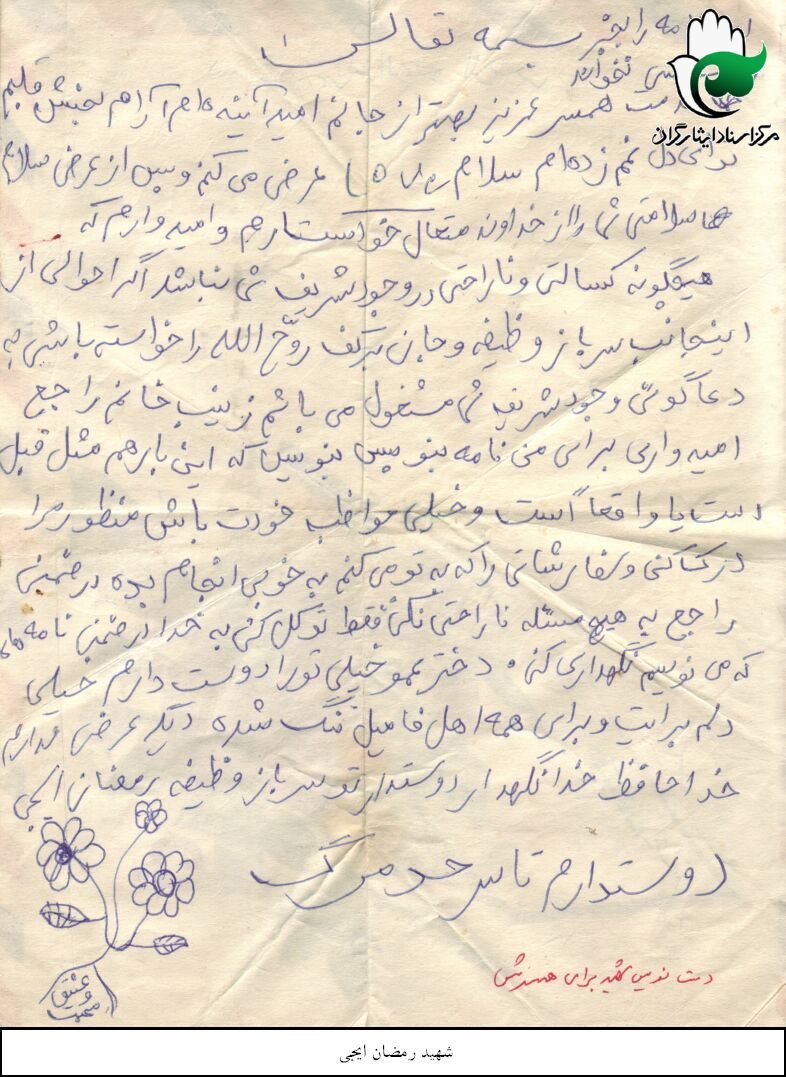 بسمه تعالی
نامه را بجز
کسی نخواند
خدمت همسر عزیز بهتر از جانم امید آینده ام آرام بخش قلبم
دل غم زده ام سلام عرض می کنم و پس از عرض سلام
سلامتی شما را از خداوند متعال خواستارم و امیدوارم که
هیچگونه کسالتی و ناراحتی در وجود شریف شما نباشد اگر احوالی از
اینجانب سرباز وظیفه و جان برکف روح الله را خواسته باشی به
دعا گوئی وجود شریف شما مشغول می باشم زینب خانم راجع
امیدواری برای من نامه بنویس بنویس که این بار هم مثل قبل
است یا واقعا است و خیلی مواظب خودت باش منظور مرا
درک کنی و سفارشاتی را که به تو می کنم به خوبی انجام بده در ضمن
راجع به هیچ مسئله ناراحتی نکن فقط توکل کن به خدا در ضمن نامه های
که می نویسم نگهداری کن دختر عمو خیلی تو را دوست دارم خیلی
دلم برایت و برای همه اهل فامیل تنگ شده دیگر عرضی ندارم
خدا حافظ خدا نگهدار دوستدار تو سرباز وظیفه رمضان ایجی
دوستدارم تا سر حد مرگ
عشق
و
محبت
دست نویس شهید برای همسرش
مرکز اسناد ایثارگران
شهید رمضان ایجی